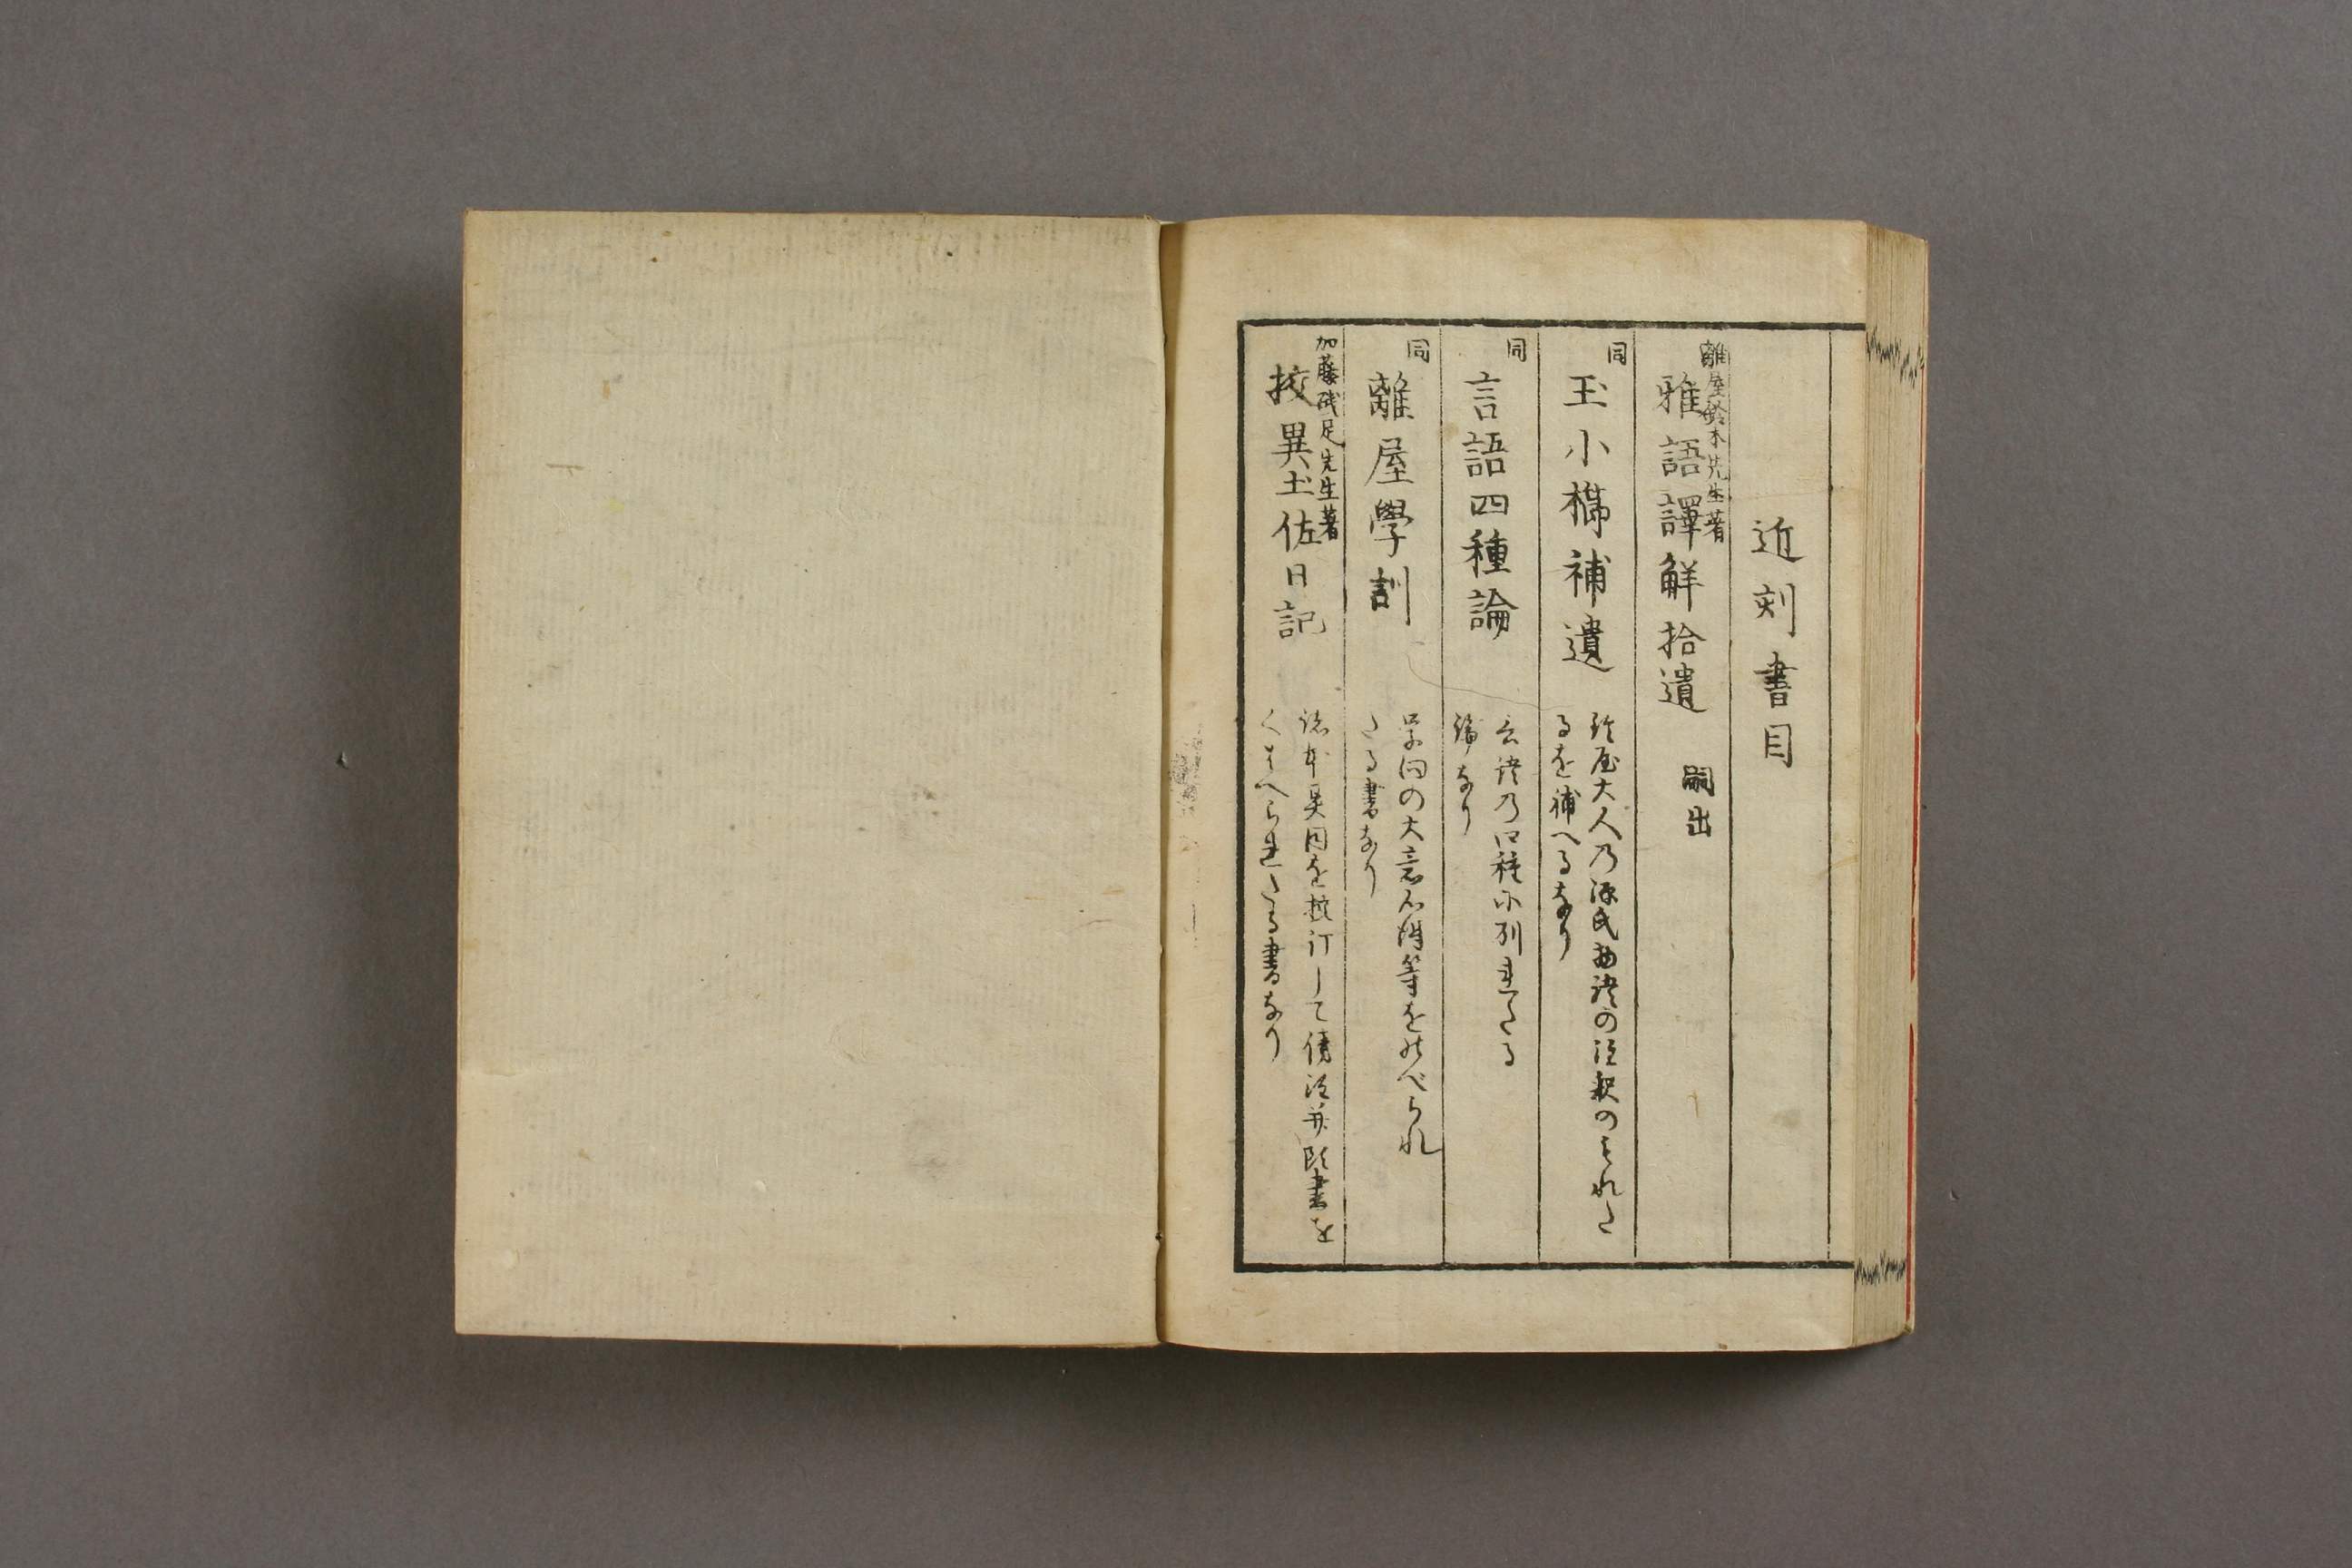 近刻書目
離屋鈴木先生著
雅語譯解拾遺 嗣出
同
玉小櫛補遺
鈴屋大人乃源氏物語の注釈のもれた
るを補へるなり
同
言語四種論
言語乃四種に別れたる
論なり
同
離屋學訓
学問の大意心得等をのべられ
たる書なり
加藤磯足先生著
挍異土佐日記
諸本異同を挍訂して傍注并頭書を
くはへられたる書なり